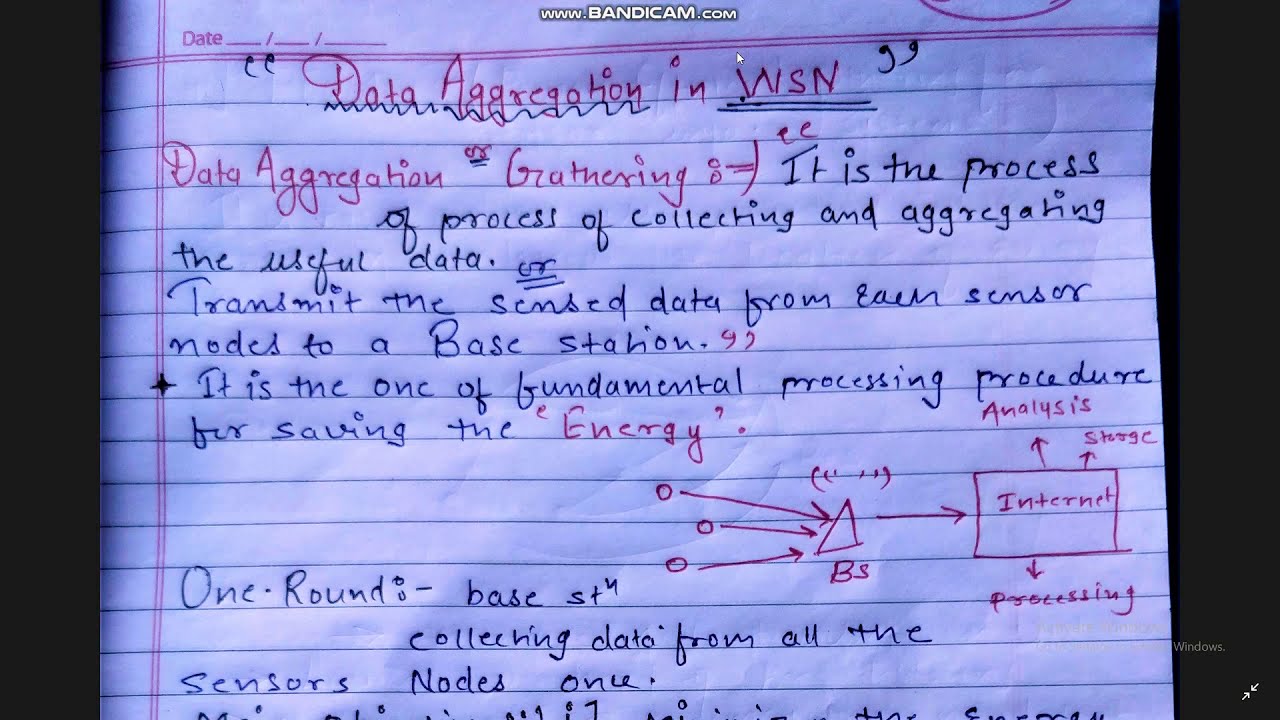 www.BANDICAM.com
Date __/__/____
"Data Aggregation in WSN"
Data Aggregation or Gathering :⇒ "It is the process
of process of collecting and aggregating
the useful data. or
Transmit the sensed data from Each sensor
nodes to a Base station."
It is the one of fundamental processing procedure
for saving the 'Energy'.
Analysis
Storge
Internet
BS
Processing
One-Round:- base stn
collecting data from all the
sensors Nodes once.
the Energy